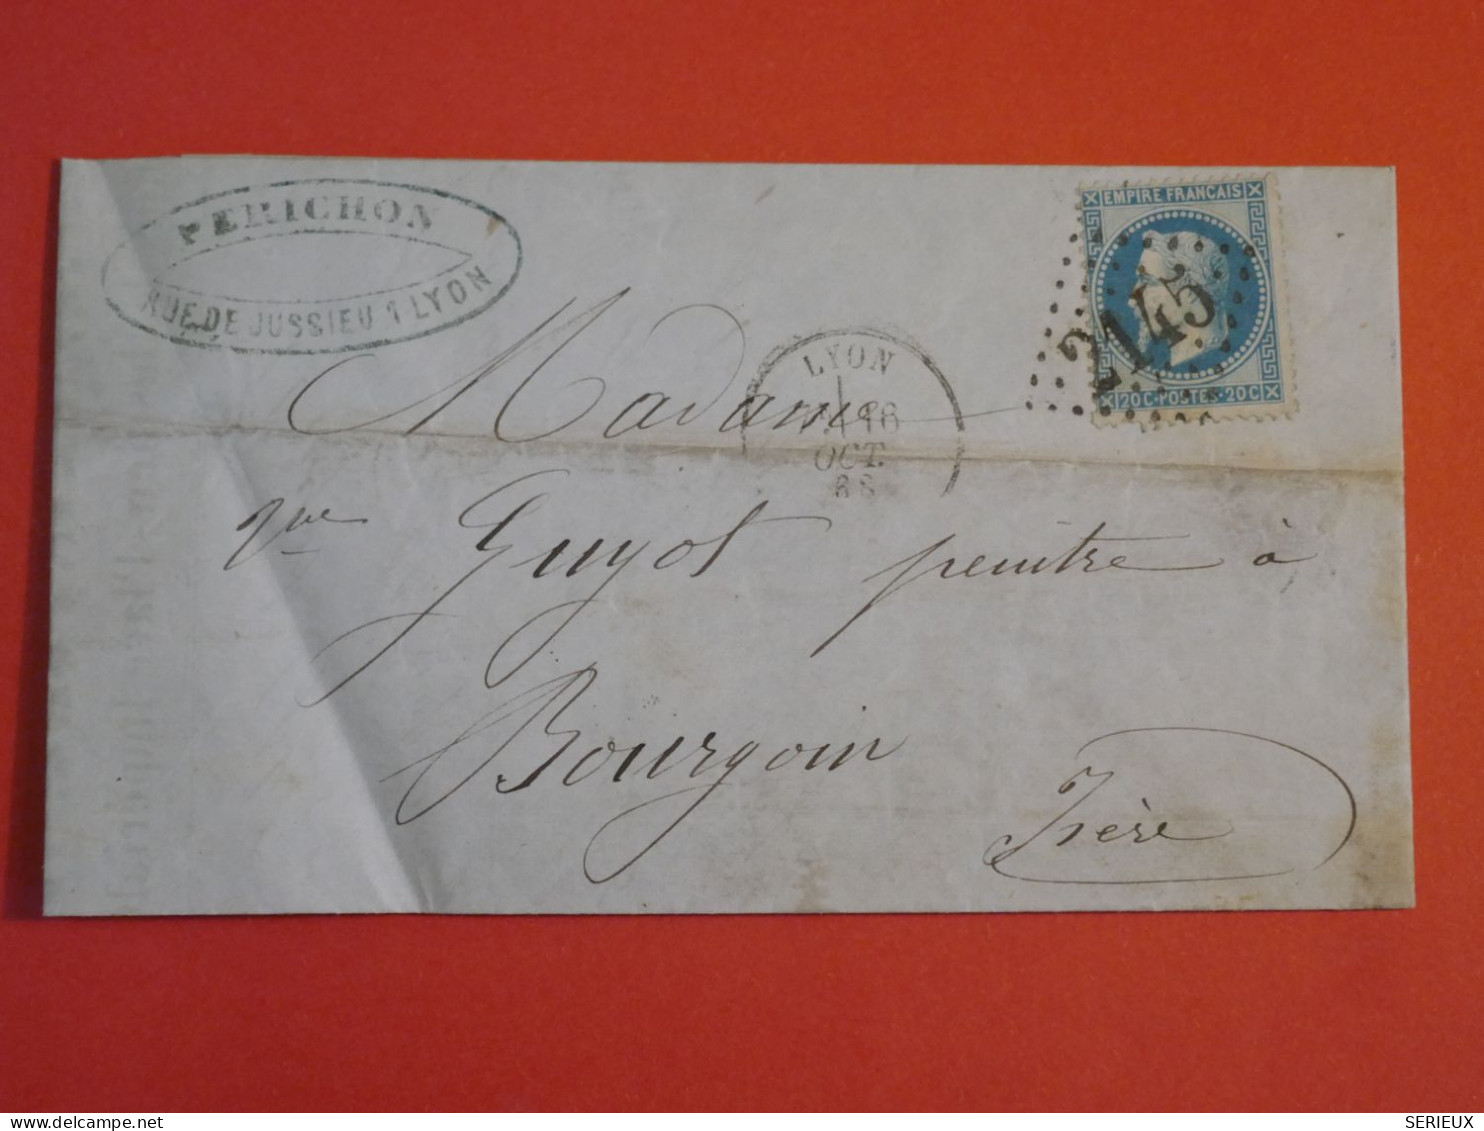 PERICHON
RUE DE JUSSIEU 1 LYON
EMPIRE FRANÇAIS
2145
20C·POSTES·20C
LYON
16
OCT.
68
Madame
Vve Guyot peintre à
Bourgoin
Isère
www.delcampe.net
SERIEUX